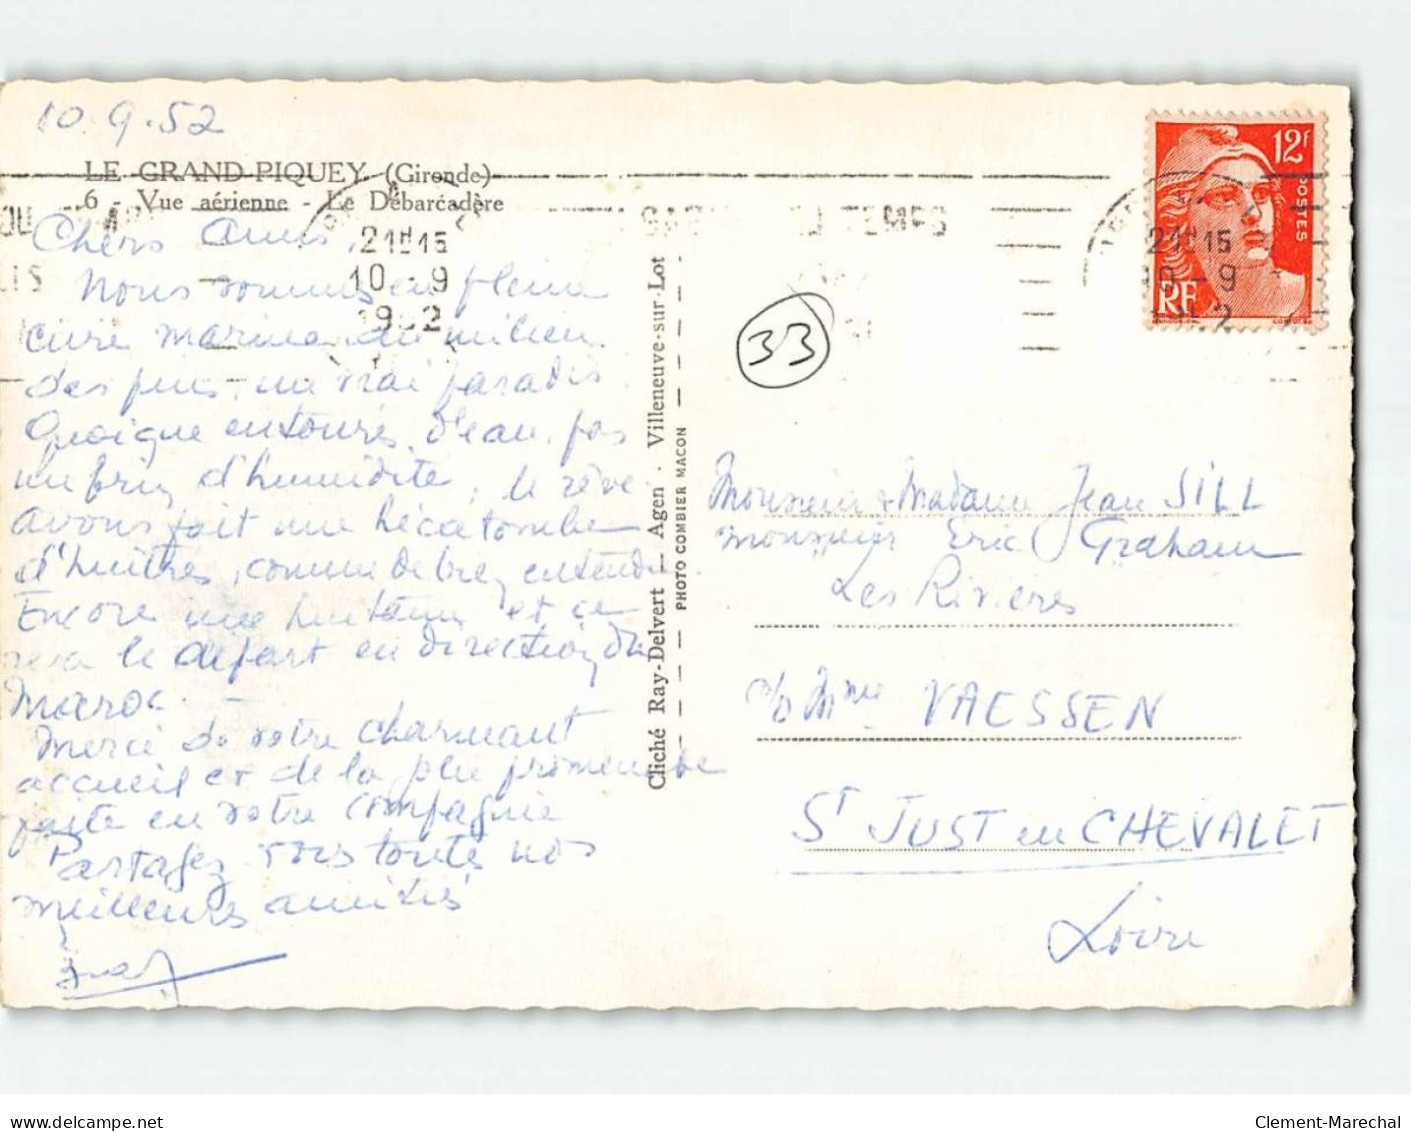 10.9.52
LE GRAND-PIQUEY (Gironde)
6 - Vue aérienne - Le Débarcadère
Chers Amis,
Nous sommes en pleine
cure marine au milieu
des pins, un vrai paradis
Quoique entourés d'eau, pas
un brin d'humidité, le rêve
avons fait une hécatombe
d'huîtres, comme de bien entendu
Encore une huitaine et ce
sera le départ en direction du
Maroc.
Merci de votre charmant
accueil et de la promenade
faite en votre compagnie
Partagez vous toutes nos
meilleures amitiés
Cliché Ray-Delvert - Agen - Villeneuve-sur-Lot
PHOTO COMBIER MACON
33
21H15
10 - 9
TEMPS
12F
POSTES
RF
21H15
10 - 9
Monsieur & Madame Jean SILL
Monsieur Eric Graham
Les Rivieres
c/o Mme VAESSEN
ST JUST en CHEVALET
Loire
delcampe.net
Clement-Marechal